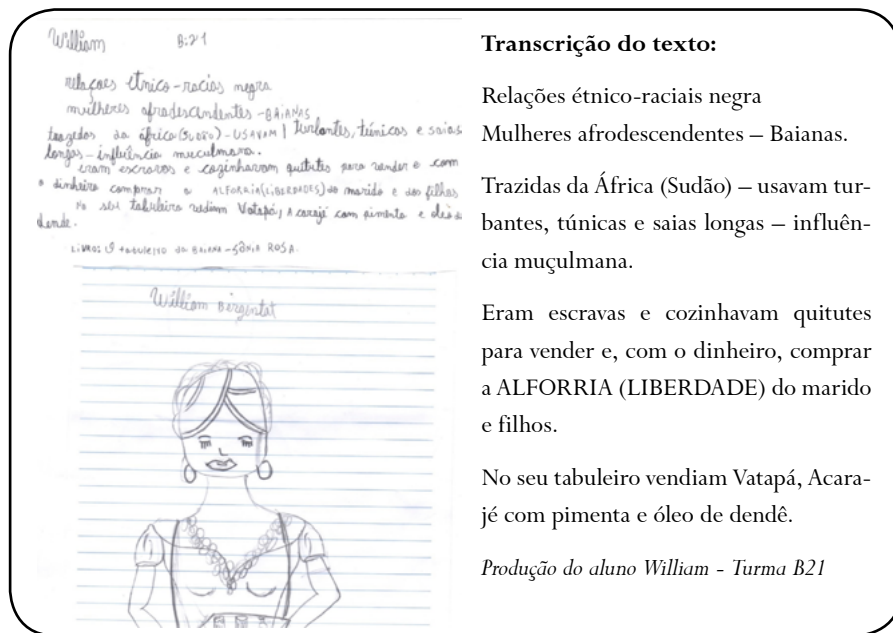 William B:21
relações étnico-racias negra
mulheres afradescendentes - BAIANAS
trazedos da áfrica (SUDÃO) - USAVAM | turbantes, túnicas e saias
longas - influência muculmana.
eram escravos e cozinhavam quitutes para vender e com
o dinheiro comprar a ALFORRIA (LIBERDADES) do marido e dos filhas
no seu tabuleiro vediam Vatapá, A carajé com pimenta e óleo de
dende.
LIVROS: O tabuleiro da BAIANA - SÔNIA ROSA.
William
Transcrição do texto:
Relações étnico-raciais negra
Mulheres afrodescendentes – Baianas.
Trazidas da África (Sudão) – usavam tur-
bantes, túnicas e saias longas – influên-
cia muçulmana.
Eram escravas e cozinhavam quitutes
para vender e, com o dinheiro, comprar
a ALFORRIA (LIBERDADE) do marido
e filhos.
No seu tabuleiro vendiam Vatapá, Acara-
jé com pimenta e óleo de dendê.
Produção do aluno William - Turma B21